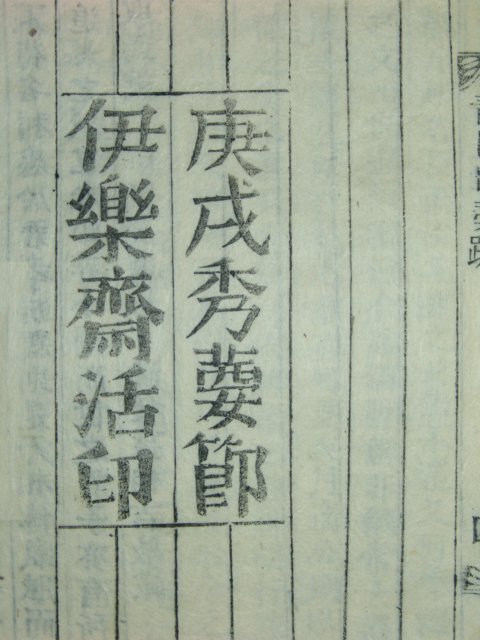 庚戌秀葽節
伊樂齋活印